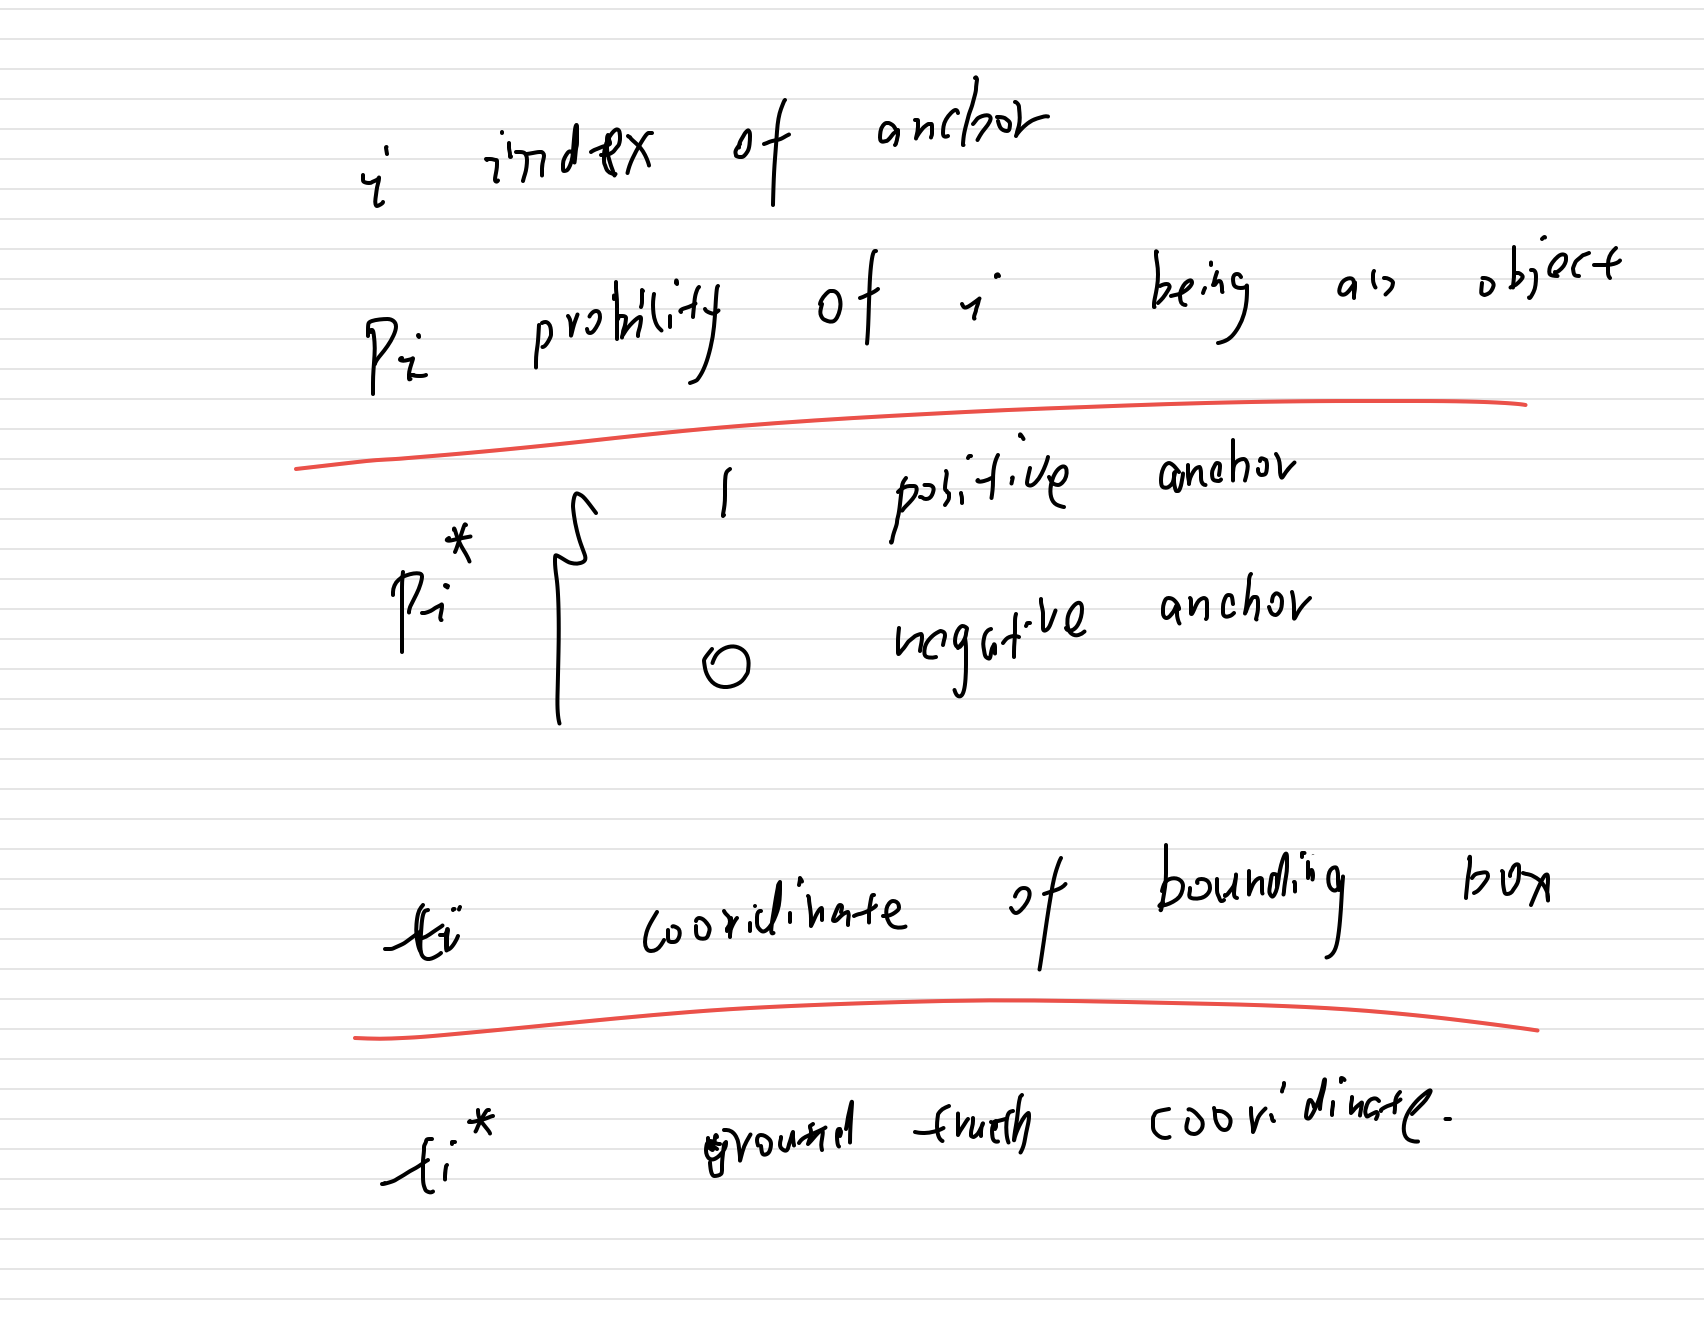 i index of anchor
Pi probility of i being an object
Pi* { 1 positive anchor
0 negative anchor
ti cooridinate of bounding box
ti* ground truth cooridinate.